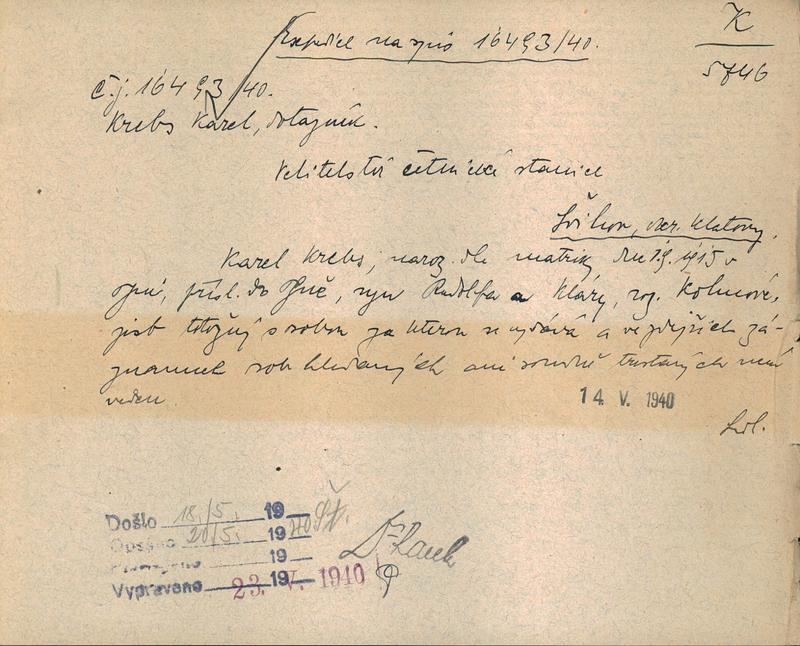 Expedice na spis 16493/40.
K
5746
č.j. 16493/40.
Krebs Karel, dotazník.
Velitelství četnické stanice
Švihov, okr. Klatovy.
Karel Krebs, naroz. dle matriky dne 1915 v
přísl. do syn Rudolfa a Kláry, roz. Kohnové,
jest totožný s osobou za kterou se vydává a ve zdejších zá-
znamech osob hledaných ani soudně trestaných není
veden.
14. V. 1940
Došlo 18./5. 19
Opsáno 20/5. 19 40 Št.
19
Vypraveno 23. V. 1940 19